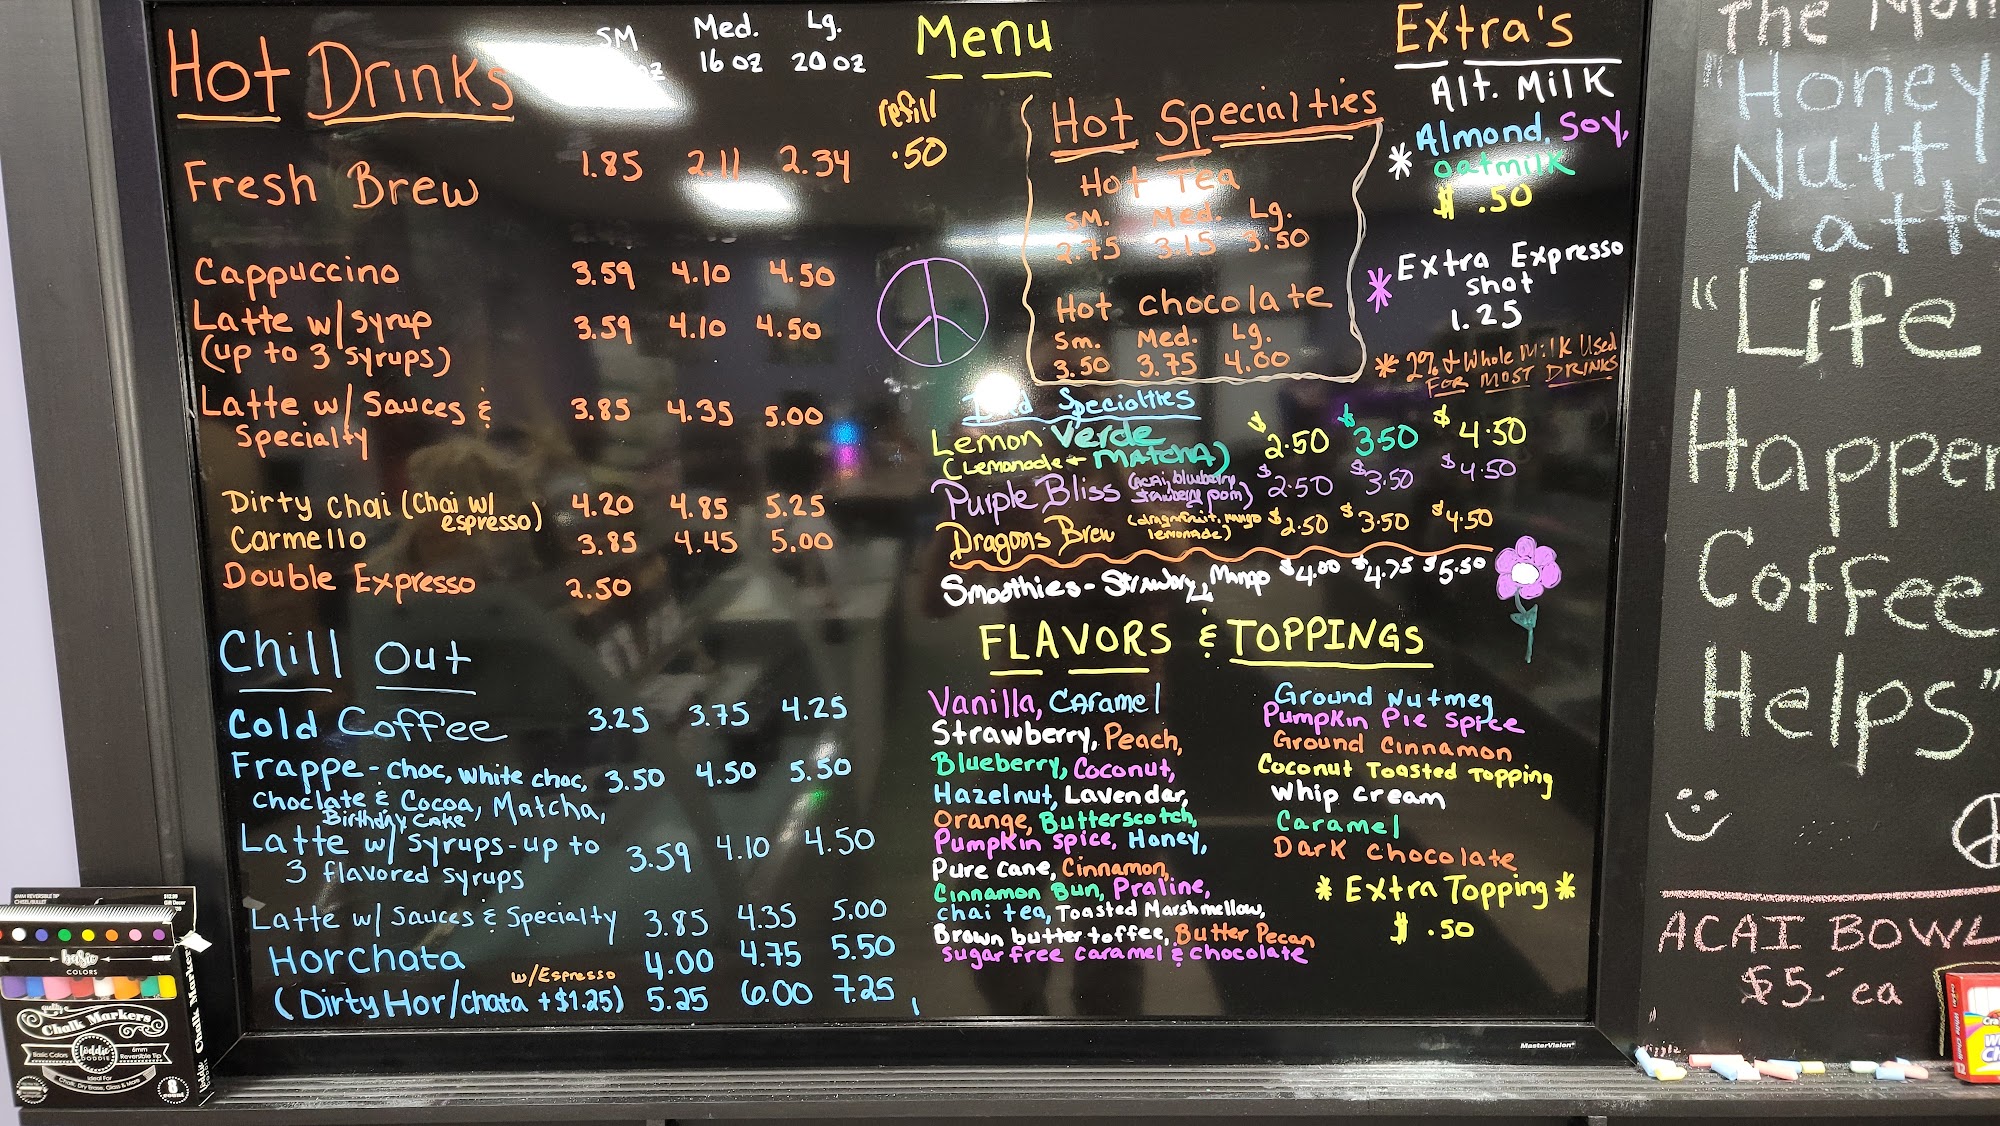 Hot Drinks
SM Med. Lg.
oz 16 oz 20 oz
refill
.50
Fresh Brew 1.85 2.11 2.34
Cappuccino 3.59 4.10 4.50
Latte w/ syrup 3.59 4.10 4.50
(up to 3 syrups)
Latte w/ Sauces & 3.85 4.35 5.00
Specialty
Dirty Chai (Chai w/ 4.20 4.85 5.25
espresso)
Carmello 3.85 4.45 5.00
Double Expresso 2.50
Chill Out
Cold Coffee 3.25 3.75 4.25
Frappe - choc, white choc, 3.50 4.50 5.50
choclate & Cocoa, Matcha,
Birthday Cake
Latte w/ Syrups - up to 3.59 4.10 4.50
3 flavored syrups
Latte w/ Sauces & Specialty 3.85 4.35 5.00
Horchata 4.00 4.75 5.50
w/Espresso
(Dirty Hor/chata + $1.25) 5.25 6.00 7.25
Menu
Hot Specialties
Hot Tea
SM. Med. Lg.
2.75 3.15 3.50
Hot chocolate
Sm. Med. Lg.
3.50 3.75 4.00
Specialties
Lemon Verde $2.50 $3.50 $4.50
(Lemonade + MATCHA)
Purple Bliss (acai, blueberry $2.50 $3.50 $4.50
strawberry pom)
Dragons Brew (dragonfruit, mango $2.50 $3.50 $4.50
lemonade)
Smoothies - Strawbry, Mango $4.00 $4.75 $5.50
Extra's
Alt. Milk
Almond, Soy,
* oatmilk
$ .50
* Extra Expresso
shot
1.25
* 2% + Whole Milk Used
FOR MOST DRINKS
FLAVORS & TOPPINGS
Vanilla, Caramel
Strawberry, Peach,
Blueberry, Coconut,
Hazelnut, Lavendar,
Orange, Butterscotch,
Pumpkin spice, Honey,
Pure cane, Cinnamon,
Cinnamon Bun, Praline,
chai tea, Toasted Marshmellow,
Brown butter toffee, Butter Pecan
Sugar free caramel & chocolate
Ground Nutmeg
Pumpkin Pie Spice
Ground Cinnamon
Coconut Toasted Topping
Whip Cream
Caramel
Dark Chocolate
* Extra Topping *
$ .50
MasterVision
The
"Honey
Nutty
Latte
"Life
Happens
Coffee
Helps"
ACAI BOWL
$5 ea
basic
COLORS
Chalk Markers
Basic Colors
6mm
Reversible Tip
Ideal For
8
count
Chalk Markers